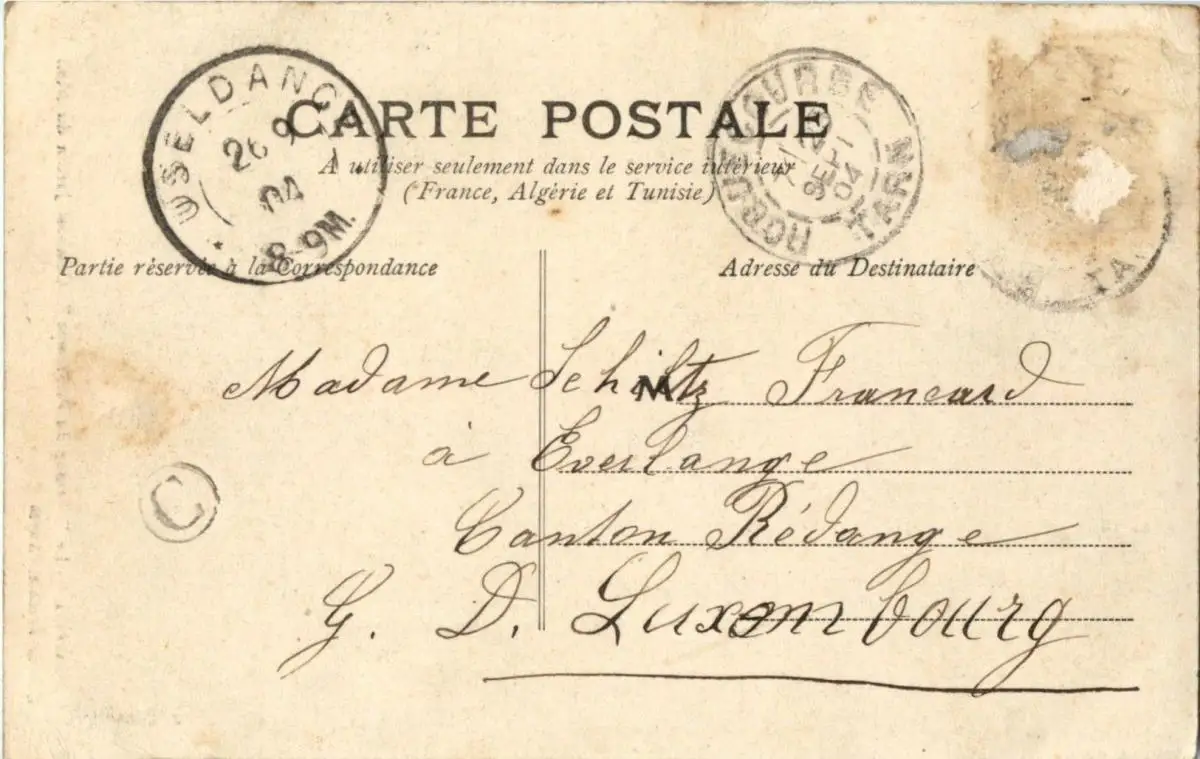 CARTE POSTALE
A utiliser seulement dans le service intérieur
(France, Algérie et Tunisie)
USELDANGE
26 9
04
8-9M.
ROQUECOURBE
SEPT
04
TARN
TA
Partie réservée à la Correspondance
Adresse du Destinataire
Madame Schiltz Francard
M
à Everlange
Canton Rédange
G. D. Luxembourg
C